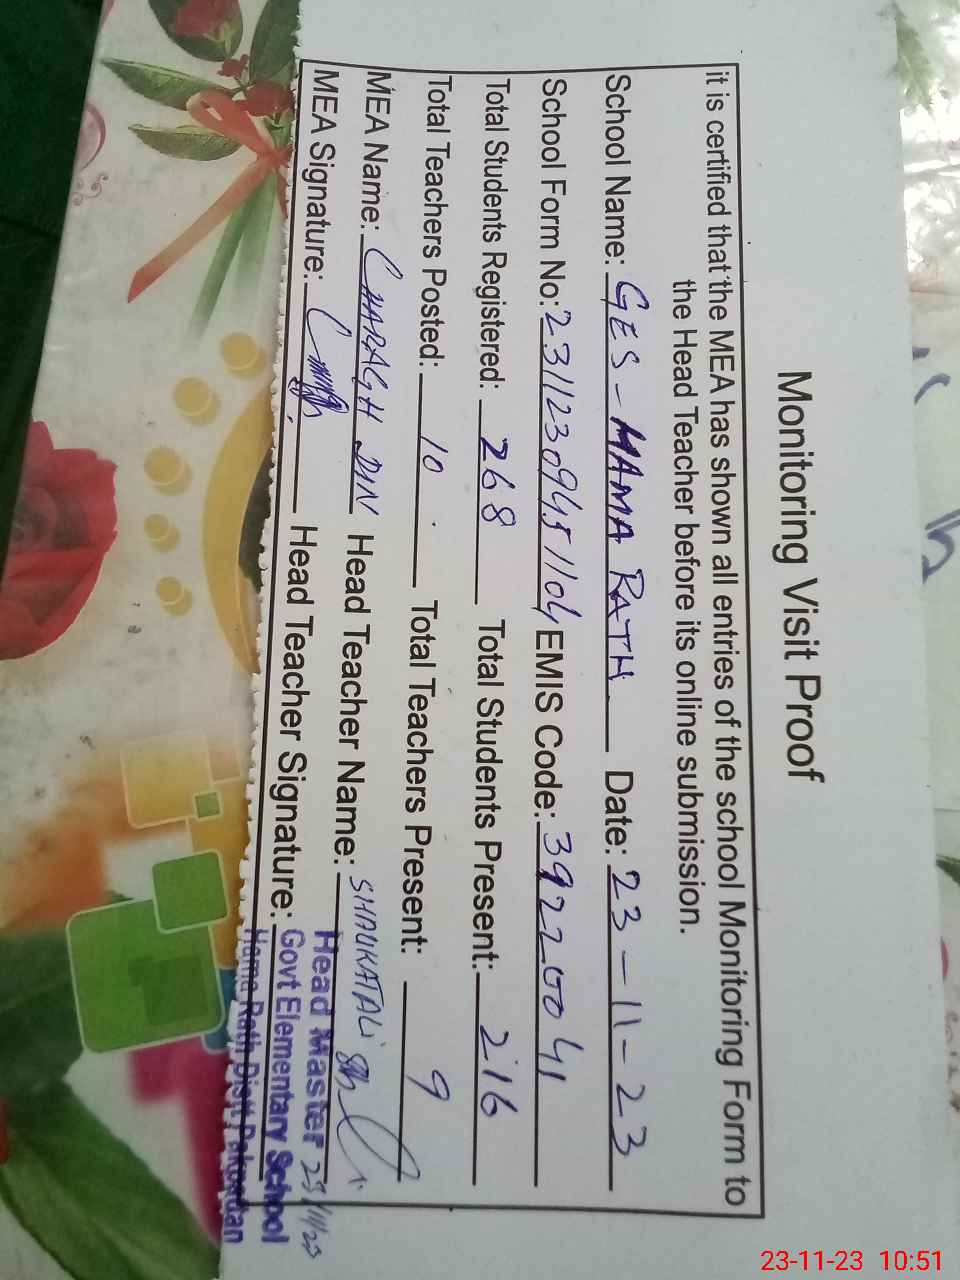 Monitoring Visit Proof
it is certified that the MEA has shown all entries of the school Monitoring Form to
the Head Teacher before its online submission.
School Name: GES - HAMA RATH Date: 23-11-23
School Form No: 23112309451104 EMIS Code: 39220041
Total Students Registered: 268 Total Students Present: 216
Total Teachers Posted: 10 Total Teachers Present: 9
MEA Name: CHARAGH DIN Head Teacher Name: SHAUKAT ALI
MEA Signature: Head Teacher Signature:
Head Master 23/11/23
Govt Elementary School
Hama Rath Distt Pakpattan
23-11-23 10:51